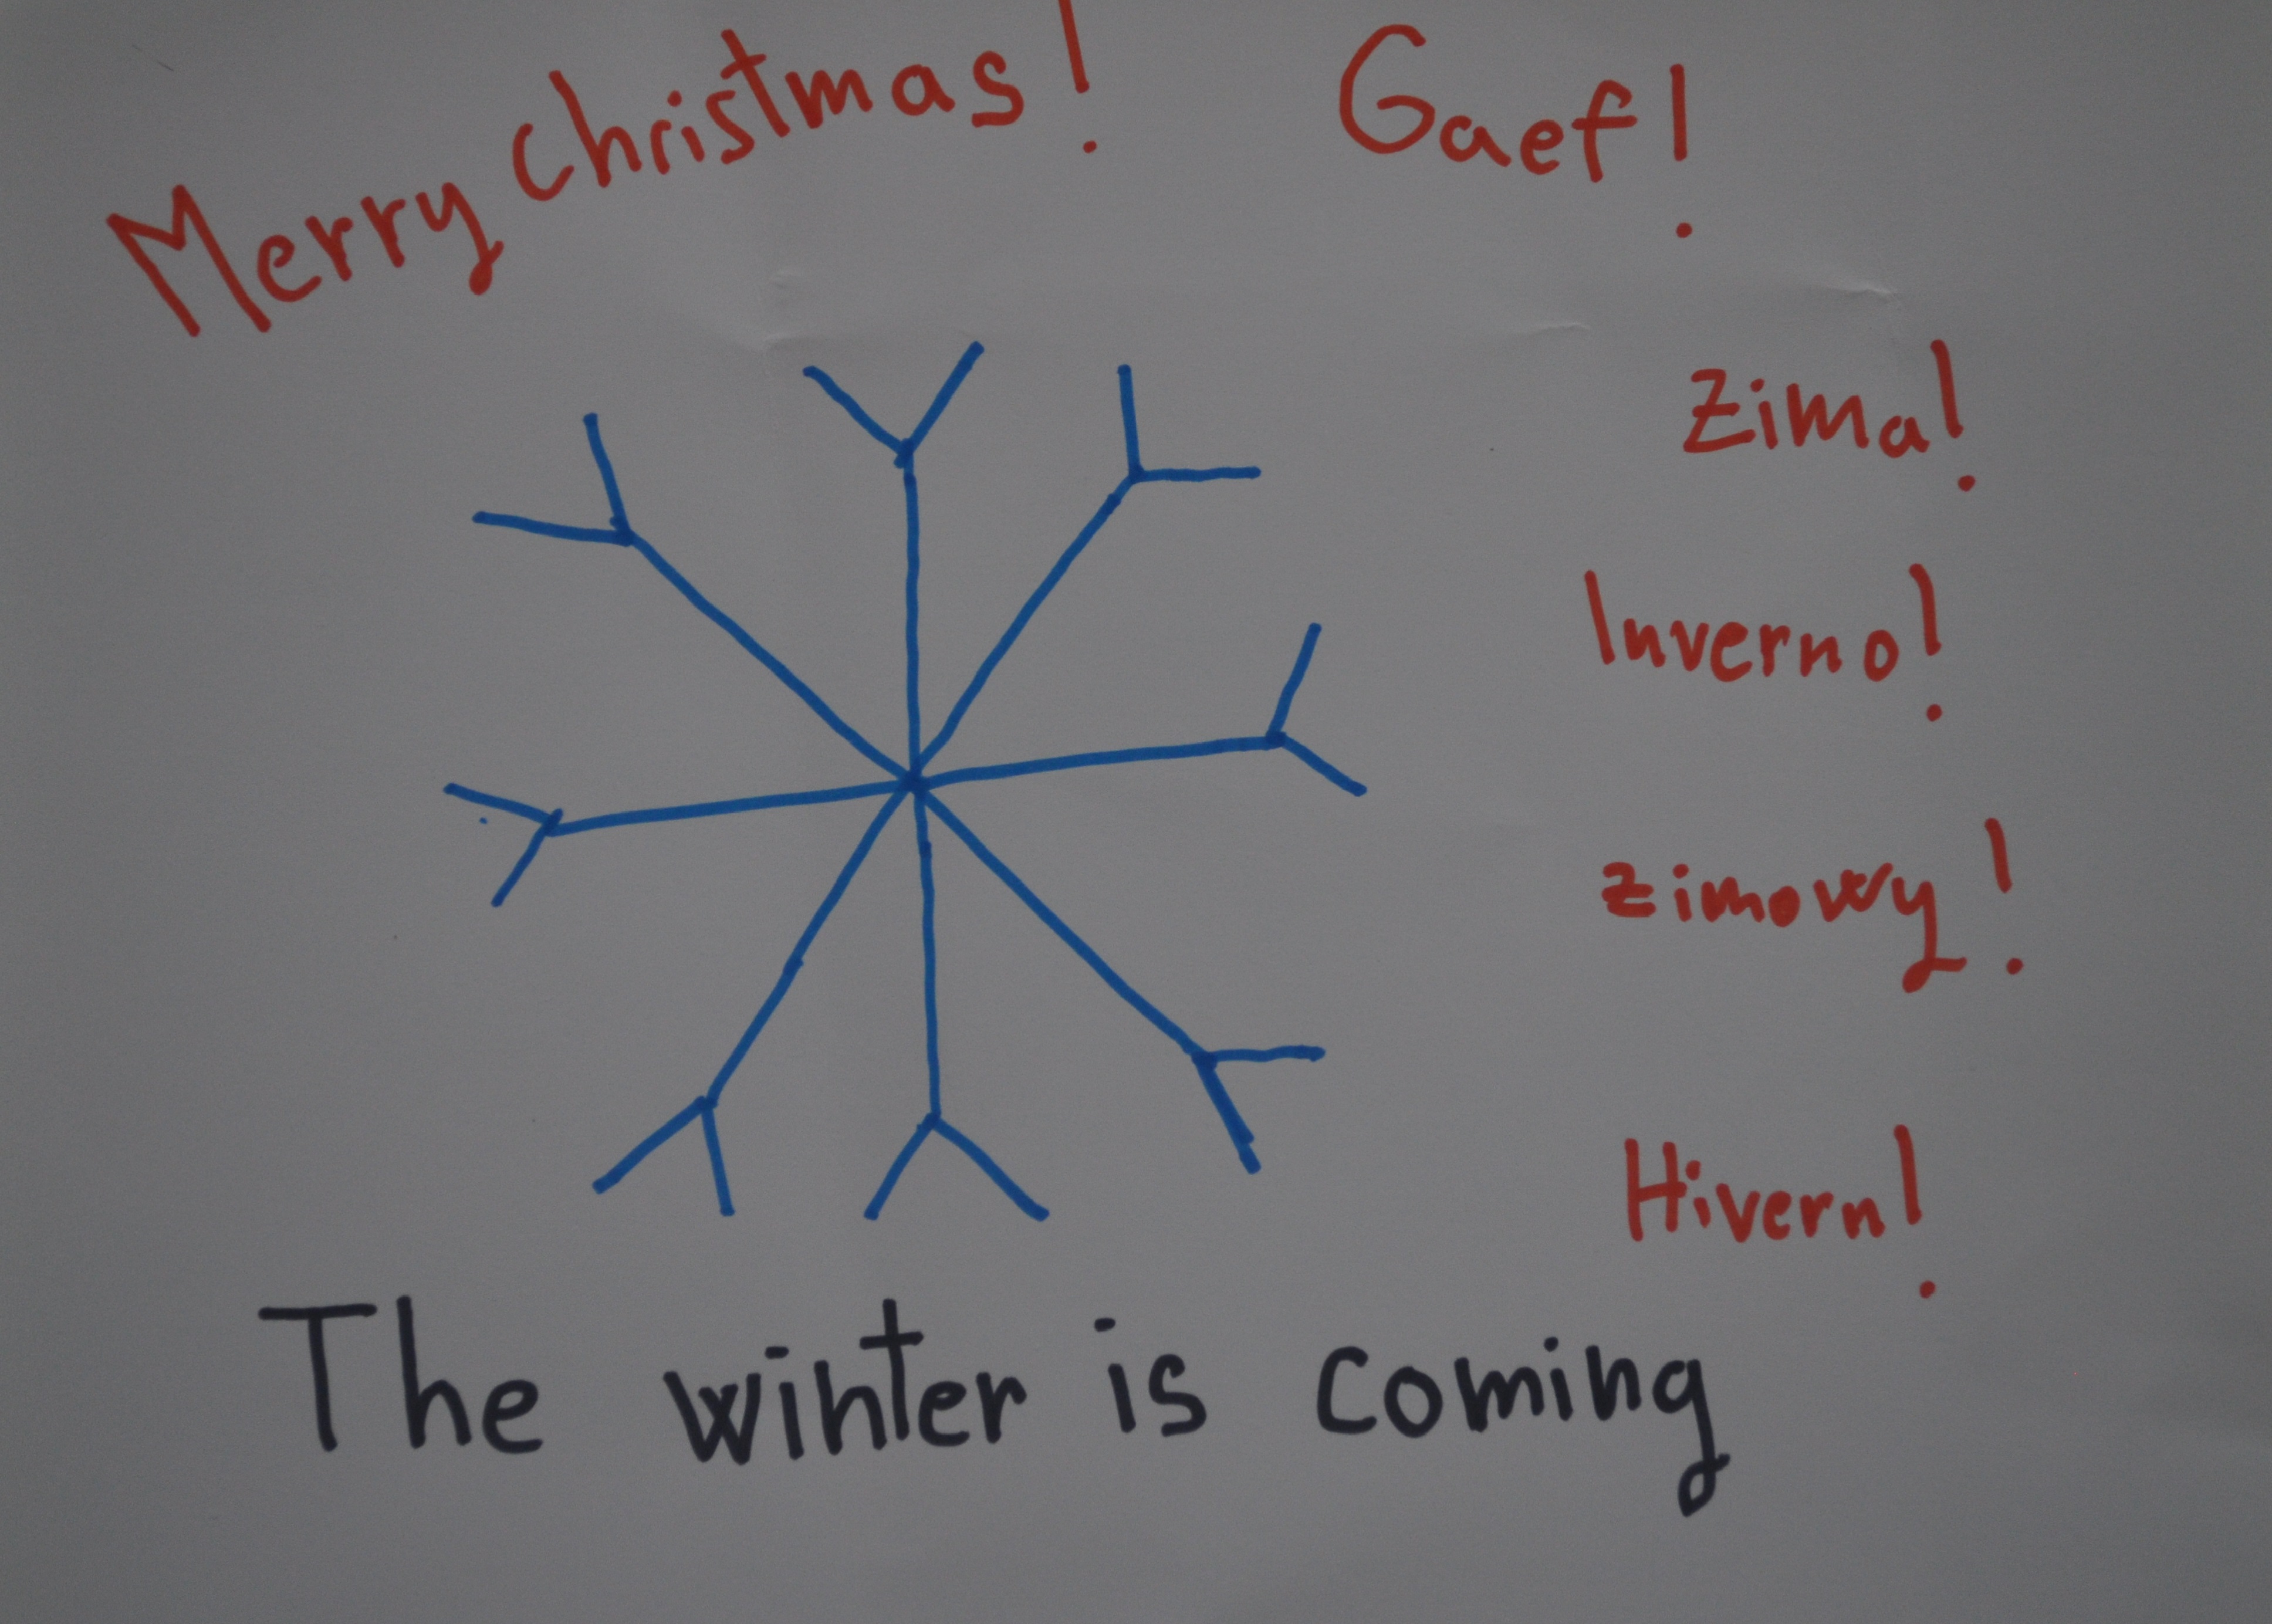 Merry Christmas!
Gaef!
Zima!
Inverno!
zimowy!
Hivern!
The winter is coming